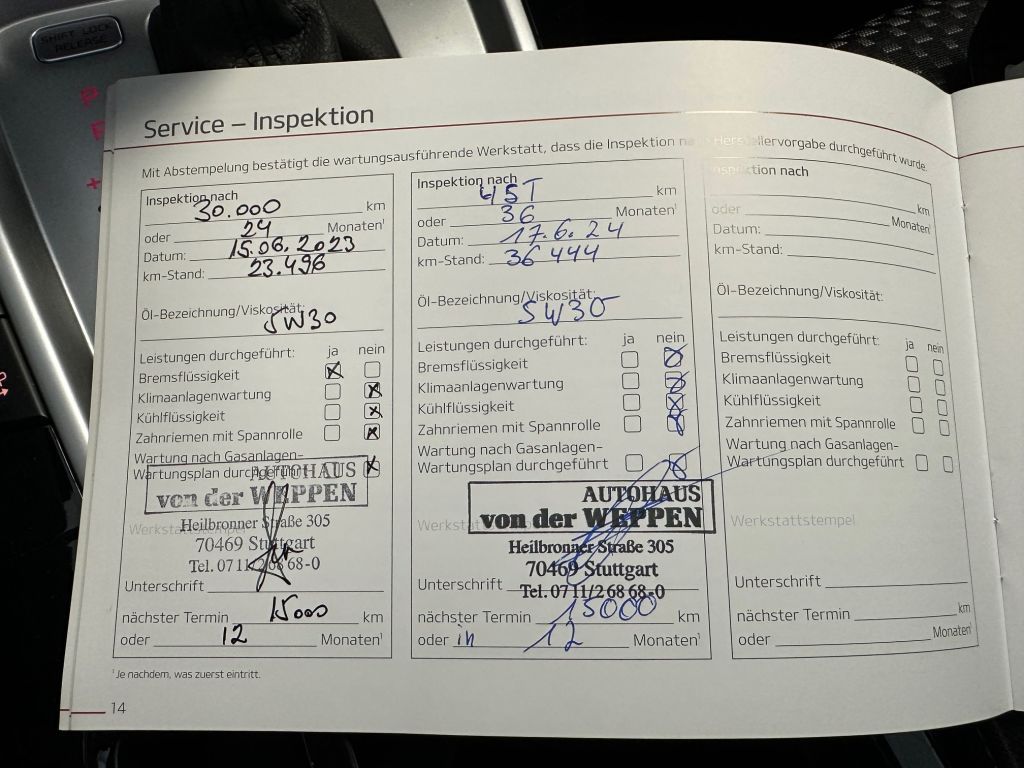 SHIFT LOCK
RELEASE
P
Service – Inspektion
Mit Abstempelung bestätigt die wartungsausführende Werkstatt, dass die Inspektion Herstellervorgabe durchgeführt wurde.
Inspektion nach
30.000 km
oder 24 Monaten¹
Datum: 15.06.2023
km-Stand: 23.496
Öl-Bezeichnung/Viskosität:
5W30
Leistungen durchgeführt: ja nein
Bremsflüssigkeit
Klimaanlagenwartung
Kühlflüssigkeit
Zahnriemen mit Spannrolle
Wartung nach Gasanlagen-
Wartungsplan durchgeführt
AUTOHAUS
von der WEPPEN
Werkstattstempel
Heilbronner Straße 305
70469 Stuttgart
Tel. 0711/2 68 68-0
Unterschrift
nächster Termin 15000 km
oder 12 Monaten¹
Inspektion nach
45T km
oder 36 Monaten¹
Datum: 17.6.24
km-Stand: 36 444
Öl-Bezeichnung/Viskosität:
5W30
Leistungen durchgeführt: ja nein
Bremsflüssigkeit
Klimaanlagenwartung
Kühlflüssigkeit
Zahnriemen mit Spannrolle
Wartung nach Gasanlagen-
Wartungsplan durchgeführt
AUTOHAUS
von der WEPPEN
Heilbronner Straße 305
70469 Stuttgart
Tel. 0711/2 68 68-0
Unterschrift
nächster Termin 15000 km
oder in 12 Monaten¹
Inspektion nach
km
oder Monaten¹
Datum:
km-Stand:
Öl-Bezeichnung/Viskosität:
Leistungen durchgeführt: ja nein
Bremsflüssigkeit
Klimaanlagenwartung
Kühlflüssigkeit
Zahnriemen mit Spannrolle
Wartung nach Gasanlagen-
Wartungsplan durchgeführt
Werkstattstempel
Unterschrift
nächster Termin km
oder Monaten¹
¹Je nachdem, was zuerst eintritt.
14